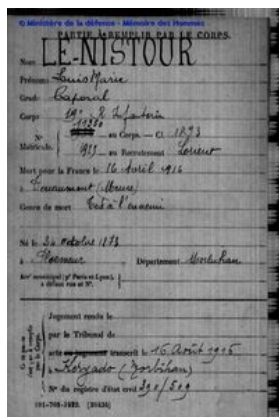 © Ministère de la défense - Mémoire des Hommes
PARTIE À REMPLIR PAR LE CORPS.
Nom LE-NISTOUR
Prénoms Louis Marie
Grade Caporal
Corps 19e R. Infanterie
N° 11380 au Corps. — Cl. 1893
Matricule. 1913 au Recrutement Lorient
Mort pour la France le 16 Avril 1916
à (Meuse)
Genre de mort Tué à l'ennemi
Né le 30 octobre 1873
à Ploemeur Département Morbihan
Arrt municipal (pr Paris et Lyon),
à défaut rue et N°.
Jugement rendu le
par le Tribunal de
acte ou jugement transcrit le 16 Août 1916
à Keryado (Morbihan)
N° du registre d'état civil 390/509